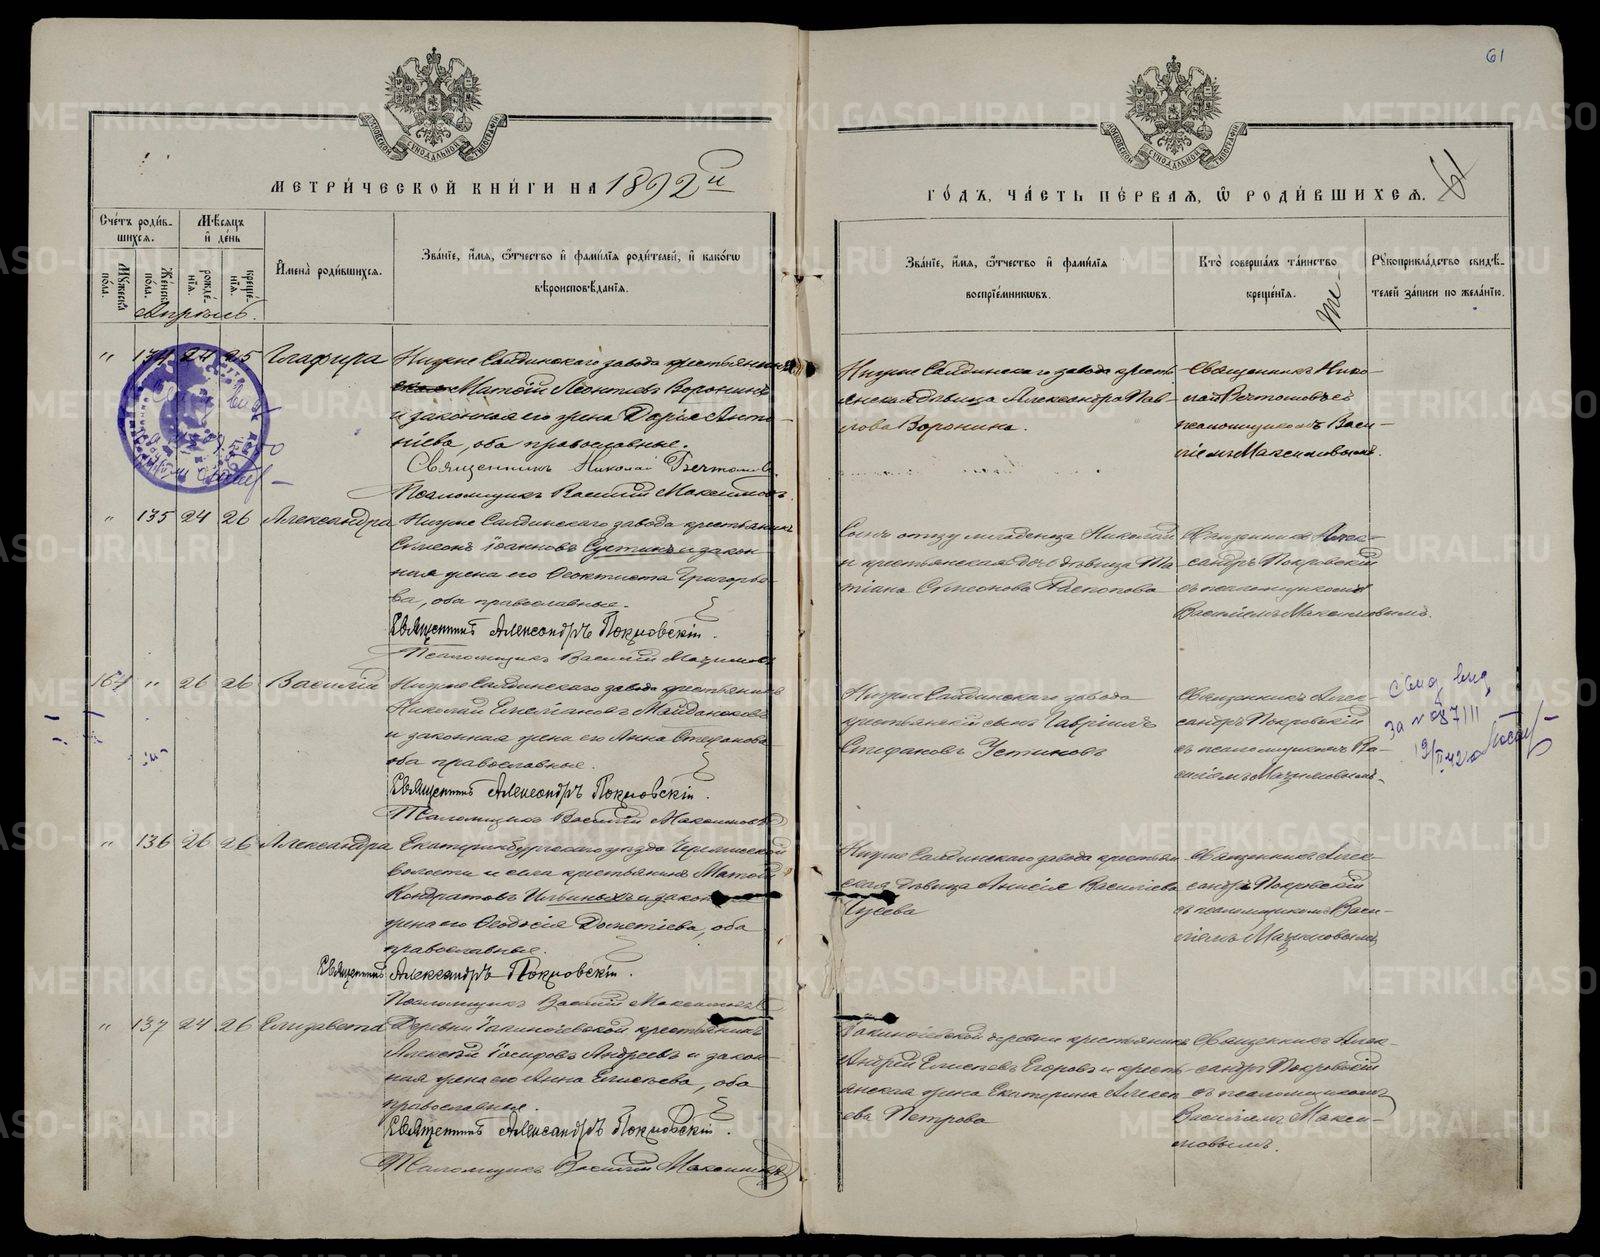 61
МОСКОВСКОЙ СѴНОДАЛЬНОЙ ТИПОГРАФІИ
МОСКОВСКОЙ СѴНОДАЛЬНОЙ ТИПОГРАФІИ
МЕТРИ́ЧЕСКОЙ КНИ́ГИ НА 1892й
ГО́ДЪ, ЧА́СТЬ ПЕ́РВАЯ, Ѿ РОДИ́ВШИХСЯ.
61
Сче́тъ роди́в-
шихся.
Му́жеска по́ла.
Же́нска по́ла.
Мѣ́сяцъ
и де́нь
рожде́нія.
креще́нія.
Имена̀ роди́вшихся.
Зва́ніе, и́мя, о́тчество и фами́лія роди́телей, и како́гѡ
вѣроисповѣ́данія.
Зва́ніе, и́мя, о́тчество и фами́лія
воспріе́мниковъ.
Кто̀ соверша́лъ та́инство
креще́нія.
Рукоприкла́дство свидѣ́-
телей за́писи по жела́нію.
Апрѣль.
" 134 24 25 Глафира
Нижне Салдинскаго завода крестьянинъ
Матѳій Леонтіевъ Воронинъ
и законная его жена Дарія Анто-
ніева, оба православные.
Священникъ Николай
Псаломщикъ Василій Максимовъ
Нижне Салдинскаго завода кресть-
янская дѣвица Александра Пав-
лова Воронина.
Священникъ Нико-
лай
псаломщикомъ Васи-
ліемъ Максимовымъ.
" 135 24 26 Александра
Нижне Салдинскаго завода крестьянинъ
Сѷмеонъ Іоанновъ Сустинъ и закон-
ная жена его Ѳеоктиста Григорье-
ва, оба православные.
Священникъ Александръ Покровскій.
Псаломщикъ Василій Максимовъ
Сынъ отцу младенца Николай
и крестьянская дочь дѣвица Та-
тіана Сѷмеонова Распопова
Священникъ Алек-
сандръ Покровскій
съ псаломщикомъ
Василіемъ Максимовымъ.
167 " 26 26 Василій
Нижне Салдинскаго завода крестьянинъ
Николай Емеліановъ Майдановъ
и законная жена его Анна Стефанова
оба православные.
Священникъ Александръ Покровскій.
Псаломщикъ Василій Максимовъ
Нижне Салдинскаго завода
крестьянскій сынъ Гавріилъ
Стефановъ Устиновъ
Священникъ Алек-
сандръ Покровскій
съ псаломщикомъ Ва-
силіемъ Максимовымъ.
за №
" 136 26 26 Александра
Екатеринбургскаго уѣзда Черемисской
волости и села крестьянинъ Матѳій
Кондратовъ Ильиныхъ и законная
жена его Ѳеодосія Дометіева, оба
православные.
Священникъ Александръ Покровскій.
Псаломщикъ Василій Максимовъ
Нижне Салдинскаго завода крестьян-
ская дѣвица Анисія Василіева
Гусева
Священникъ Алек-
сандръ Покровскій
съ псаломщикомъ Васи-
ліемъ Максимовымъ.
" 137 24 26 Елизавета
Деревни крестьянинъ
Алексѣй Іосифовъ Андреевъ и закон-
ная жена его Анна Елисѣева, оба
православные.
Священникъ Александръ Покровскій.
Псаломщикъ Василій Максимовъ
деревни крестьянинъ
Андрей Елисѣевъ Егоровъ и кресть-
янская жена Екатерина Алексѣ-
ева Петрова
Священникъ Алек-
сандръ Покровскій
съ псаломщикомъ
Василіемъ Макси-
мовымъ.
METRIKI.GASO-URAL.RU